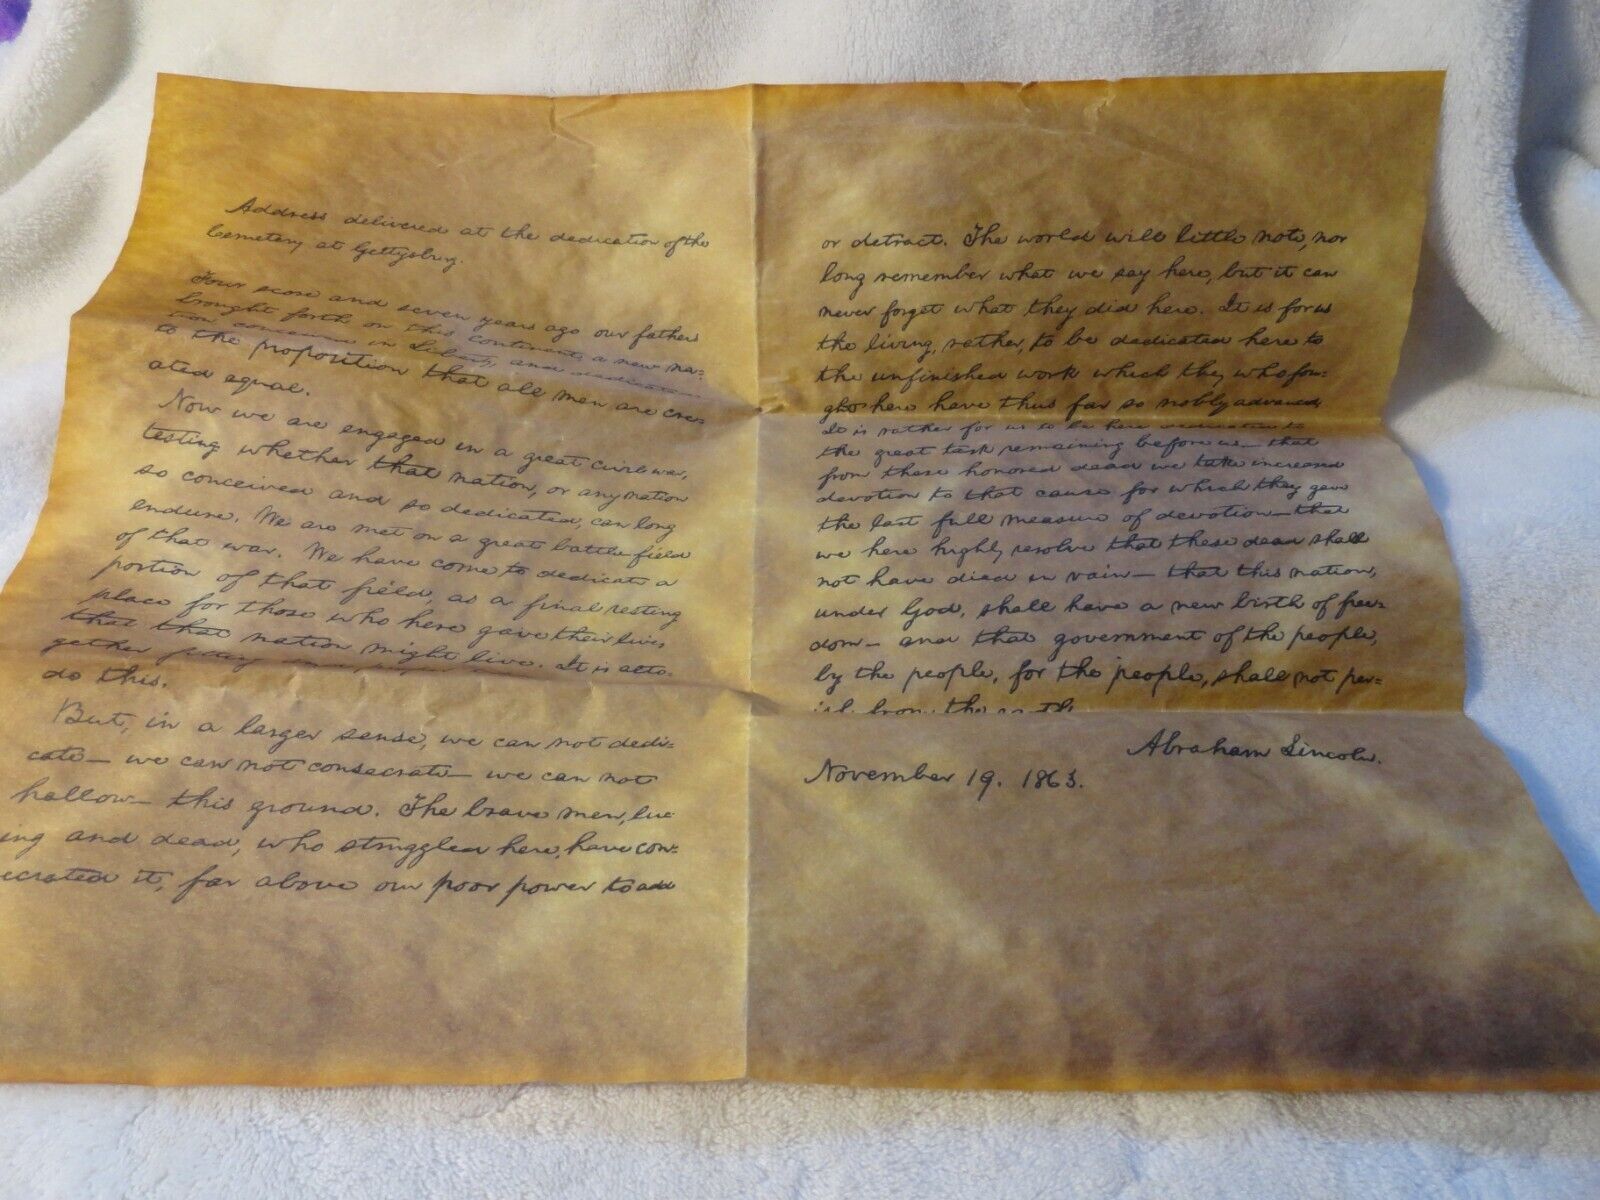 Address delivered at the dedication of the
Cemetery at Gettysburg.
Four score and seven years ago our fathers
brought forth on this continent, a new na=
tion, conceived in Liberty, and dedicated
to the proposition that all men are cre=
ated equal.
Now we are engaged in a great civil war,
testing whether that nation, or any nation
so conceived and so dedicated, can long
endure. We are met on a great battle field
of that war. We have come to dedicate a
portion of that field, as a final resting
place for those who here gave their lives
that that nation might live. It is alto=
gether fitting and proper
do this.
But, in a larger sense, we can not dedi=
cate— we can not consecrate— we can not
hallow— this ground. The brave men, liv=
ing and dead, who struggled here, have con=
secrated it, far above our poor power to add
or detract. The world will little note, nor
long remember what we say here, but it can
never forget what they did here. It is for us
the living, rather, to be dedicated here to
the unfinished work which they who fou=
ght here have thus far so nobly advanced.
It is rather for us to be here dedicated to
the great task remaining before us— that
from these honored dead we take increased
devotion to that cause for which they gave
the last full measure of devotion— that
we here highly resolve that these dead shall
not have died in vain— that this nation,
under God, shall have a new birth of free=
dom— and that government of the people,
by the people, for the people, shall not per=
ish from the earth.
Abraham Lincoln.
November 19. 1863.